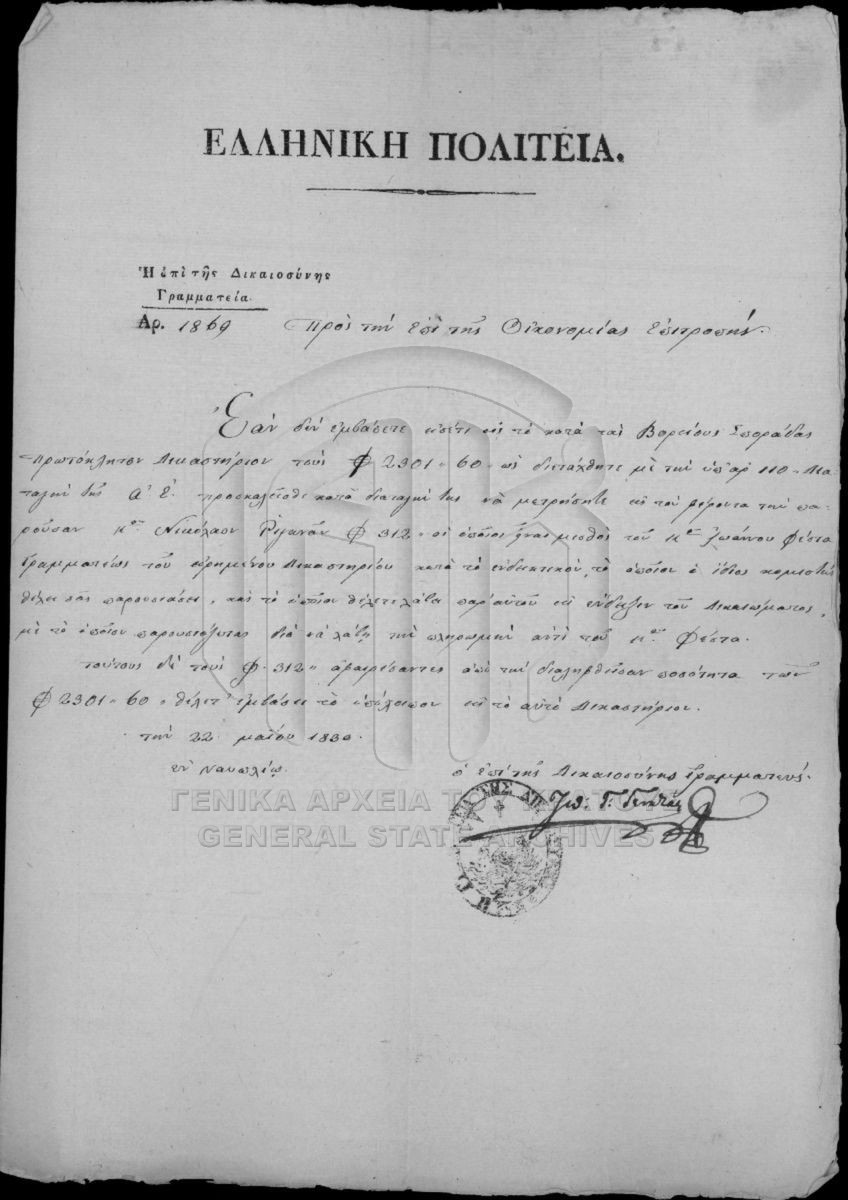 ΕΛΛΗΝΙΚΗ ΠΟΛΙΤΕΙΑ.
Ἡ ἐπὶ τῆς Δικαιοσύνης
Γραμματεία.
Αρ. 1869 Πρὸς τὴν ἐπὶ τῆς Οἰκονομίας Ἐπιτροπήν.
Ἐὰν δὲν ἐμβάσετε εἰσέτι εἰς τὸ κατὰ τὰς Βορείους Σποράδας
Πρωτόκλητον Δικαστήριον τοὺς φ 2301 " 60 " ὡς διετάχθητε μὲ τὴν ὑπ' ἀρ 110 " Δια-
ταγὴν τῆς Α. Ε. προσκαλεῖσθε κατὰ διαταγήν της νὰ μετρήσητε εἰς τὸν φέροντα τὴν πα-
ροῦσαν Κον Νικόλαον φ 312 " οἱ ὁποῖοι εἶναι μισθὸς τοῦ Κου Ἰωάννου Φέστα
Γραμματέως τοῦ εἰρημένου Δικαστηρίου κατὰ τὸ ἐνδεικτικὸν, τὸ ὁποῖον ὁ ἴδιος κομιστὴς
θέλει σᾶς παρουσιάσει, καὶ τὸ ὁποῖον θέλετε λάβει παρ' αὐτοῦ εἰς ἔνδειξιν τοῦ δικαιώματος,
μὲ τὸ ὁποῖον παρουσιάζεται διὰ νὰ λάβῃ τὴν πληρωμὴν ἀντὶ τοῦ Κου Φέστα.
τούτους δὲ τοὺς φ. 312 " ἀφαιρέσαντες ἀπὸ τὴν διαληφθεῖσαν ποσότητα τῶν
φ 2301 " 60 " θέλετ' ἐμβάσει τὸ ὑπόλοιπον εἰς τὸ αὐτὸ Δικαστήριον.
τὴν 22 μαΐου 1830
ἐν Ναυπλίῳ.
ὁ ἐπὶ τῆς Δικαιοσύνης Γραμματεύς.
ΓΕΝΙΚΑ ΑΡΧΕΙΑ ΤΟΥ ΚΡΑΤΟΥΣ
GENERAL STATE ARCHIVES